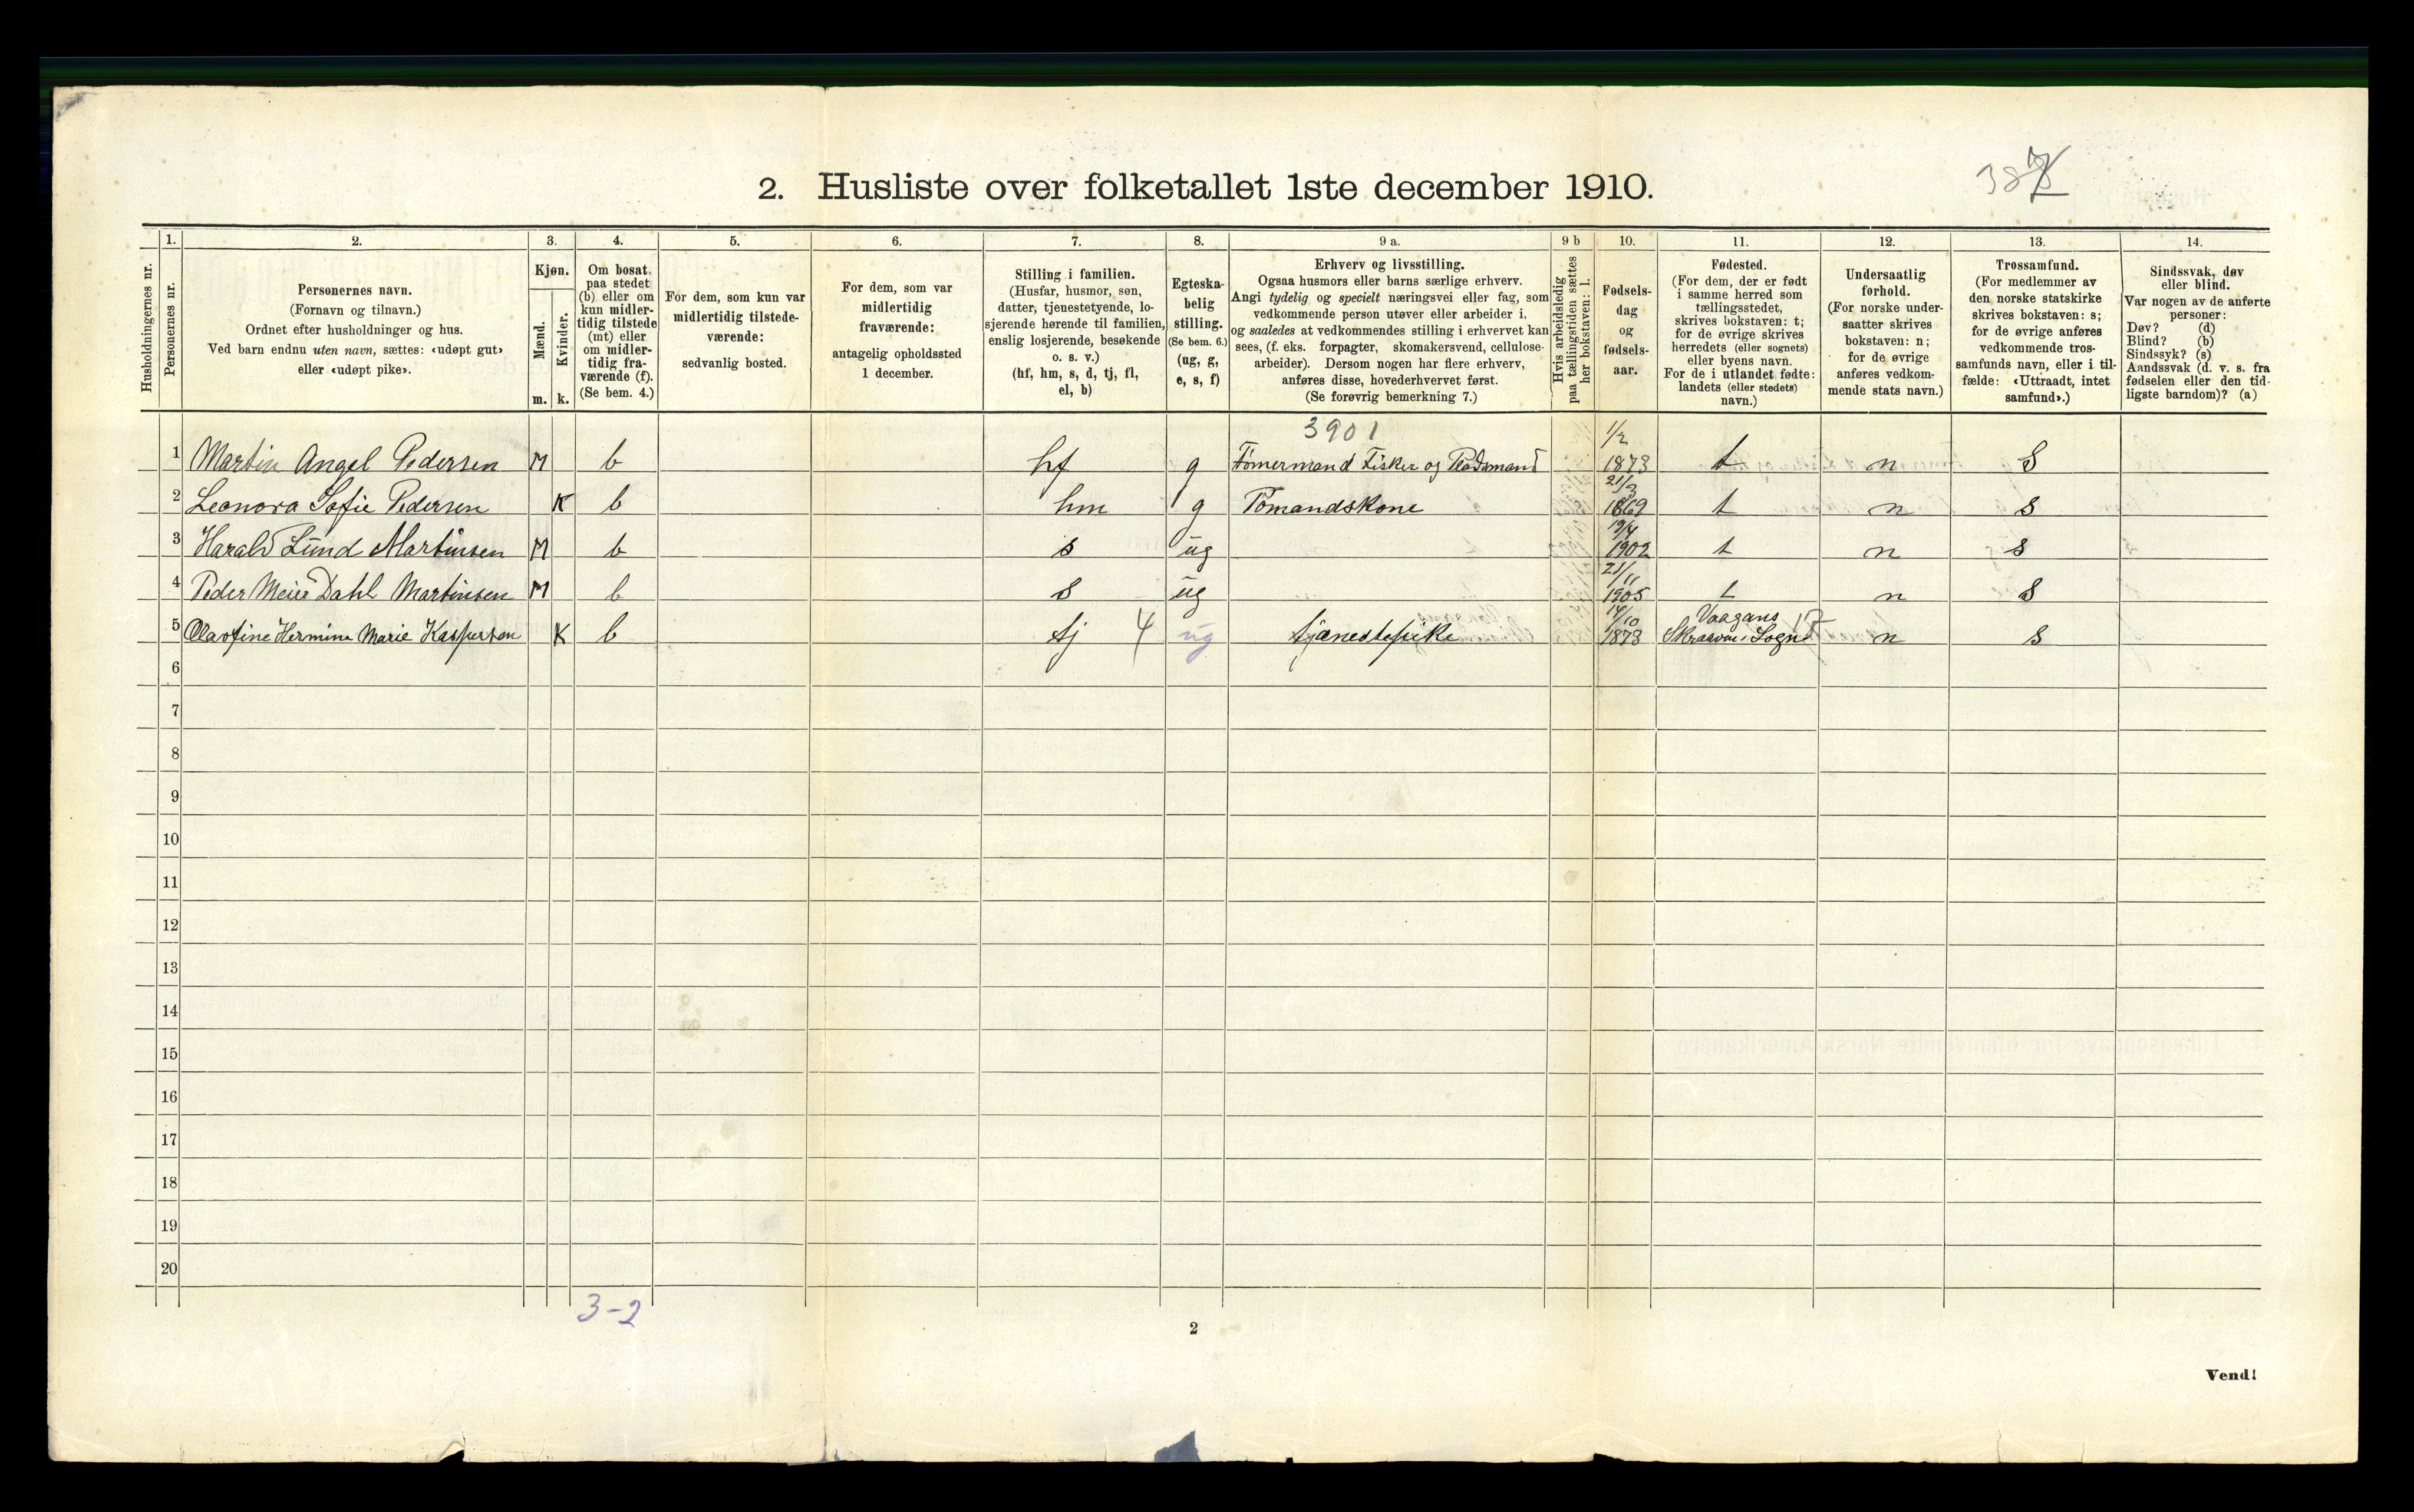 387
2. Husliste over folketallet 1ste december 1910.
Husholdningernes nr.
1.
Personernes nr.
2.
Personernes navn.
(Fornavn og tilnavn.)
Ordnet efter husholdninger og hus.
Ved barn endnu uten navn, sættes: «udøpt gut»
eller «udøpt pike».
3.
Kjøn.
Mænd.
Kvinder.
m. k.
4.
Om bosat
paa stedet
(b) eller om
kun midler-
tidig tilstede
(mt) eller
om midler-
tidig fra-
værende (f).
(Se bem. 4.)
5.
For dem, som kun var
midlertidig tilstede-
værende:
sedvanlig bosted.
6.
For dem, som var
midlertidig
fraværende:
antagelig opholdssted
1 december.
7.
Stilling i familien.
(Husfar, husmor, søn,
datter, tjenestetyende, lo-
sjerende hørende til familien,
enslig losjerende, besøkende
o. s. v.)
(hf, hm, s, d, tj, fl,
el, b)
8.
Egteska-
belig
stilling.
(Se bem. 6.)
(ug, g,
e, s, f)
9 a.
Erhverv og livsstilling.
Ogsaa husmors eller barns særlige erhverv.
Angi tydelig og specielt næringsvei eller fag, som
vedkommende person utøver eller arbeider i,
og saaledes at vedkommendes stilling i erhvervet kan
sees, (f. eks. forpagter, skomakersvend, cellulose-
arbeider). Dersom nogen har flere erhverv,
anføres disse, hovederhvervet først.
(Se forøvrig bemerkning 7.)
9 b
Hvis arbeidsledig
paa tællingstiden sættes
her bokstaven: l.
10.
Fødsels-
dag
og
fødsels-
aar.
11.
Fødested.
(For dem, der er født
i samme herred som
tællingsstedet,
skrives bokstaven: t;
for de øvrige skrives
herredets (eller sognets)
eller byens navn.
For de i utlandet fødte:
landets (eller stedets)
navn.)
12.
Undersaatlig
forhold.
(For norske under-
saatter skrives
bokstaven: n;
for de øvrige
anføres vedkom-
mende stats navn.)
13.
Trossamfund.
(For medlemmer av
den norske statskirke
skrives bokstaven: s;
for de øvrige anføres
vedkommende tros-
samfunds navn, eller i til-
fælde: «Uttraadt, intet
samfund».)
14.
Sindssvak, døv
eller blind.
Var nogen av de anførte
personer:
Døv? (d)
Blind? (b)
Sindssyk? (s)
Aandssvak (d. v. s. fra
fødselen eller den tid-
ligste barndom)? (a)
3901
1 Martin Angel Pedersen M b hf g Tømermand Fisker og Pladsmand 1/2 1873 t n S
2 Leonora Sofie Pedersen K b hm g Tømandskone 21/3 1869 t n S
3 Harald Lund Martinsen M b s ug 19/4 1902 t n s
4 Peder Meier Dahl Martinsen M b s ug 21/11 1905 t n S
5 Olavtine Hermine Marie Kaspersen K b tj 4 ug tjenestepike 14/10 1873 Vaagans Skraaven Sogn n s
6
7
8
9
10
11
12
13
14
15
16
17
18
19
20
3-2
2
Vend!